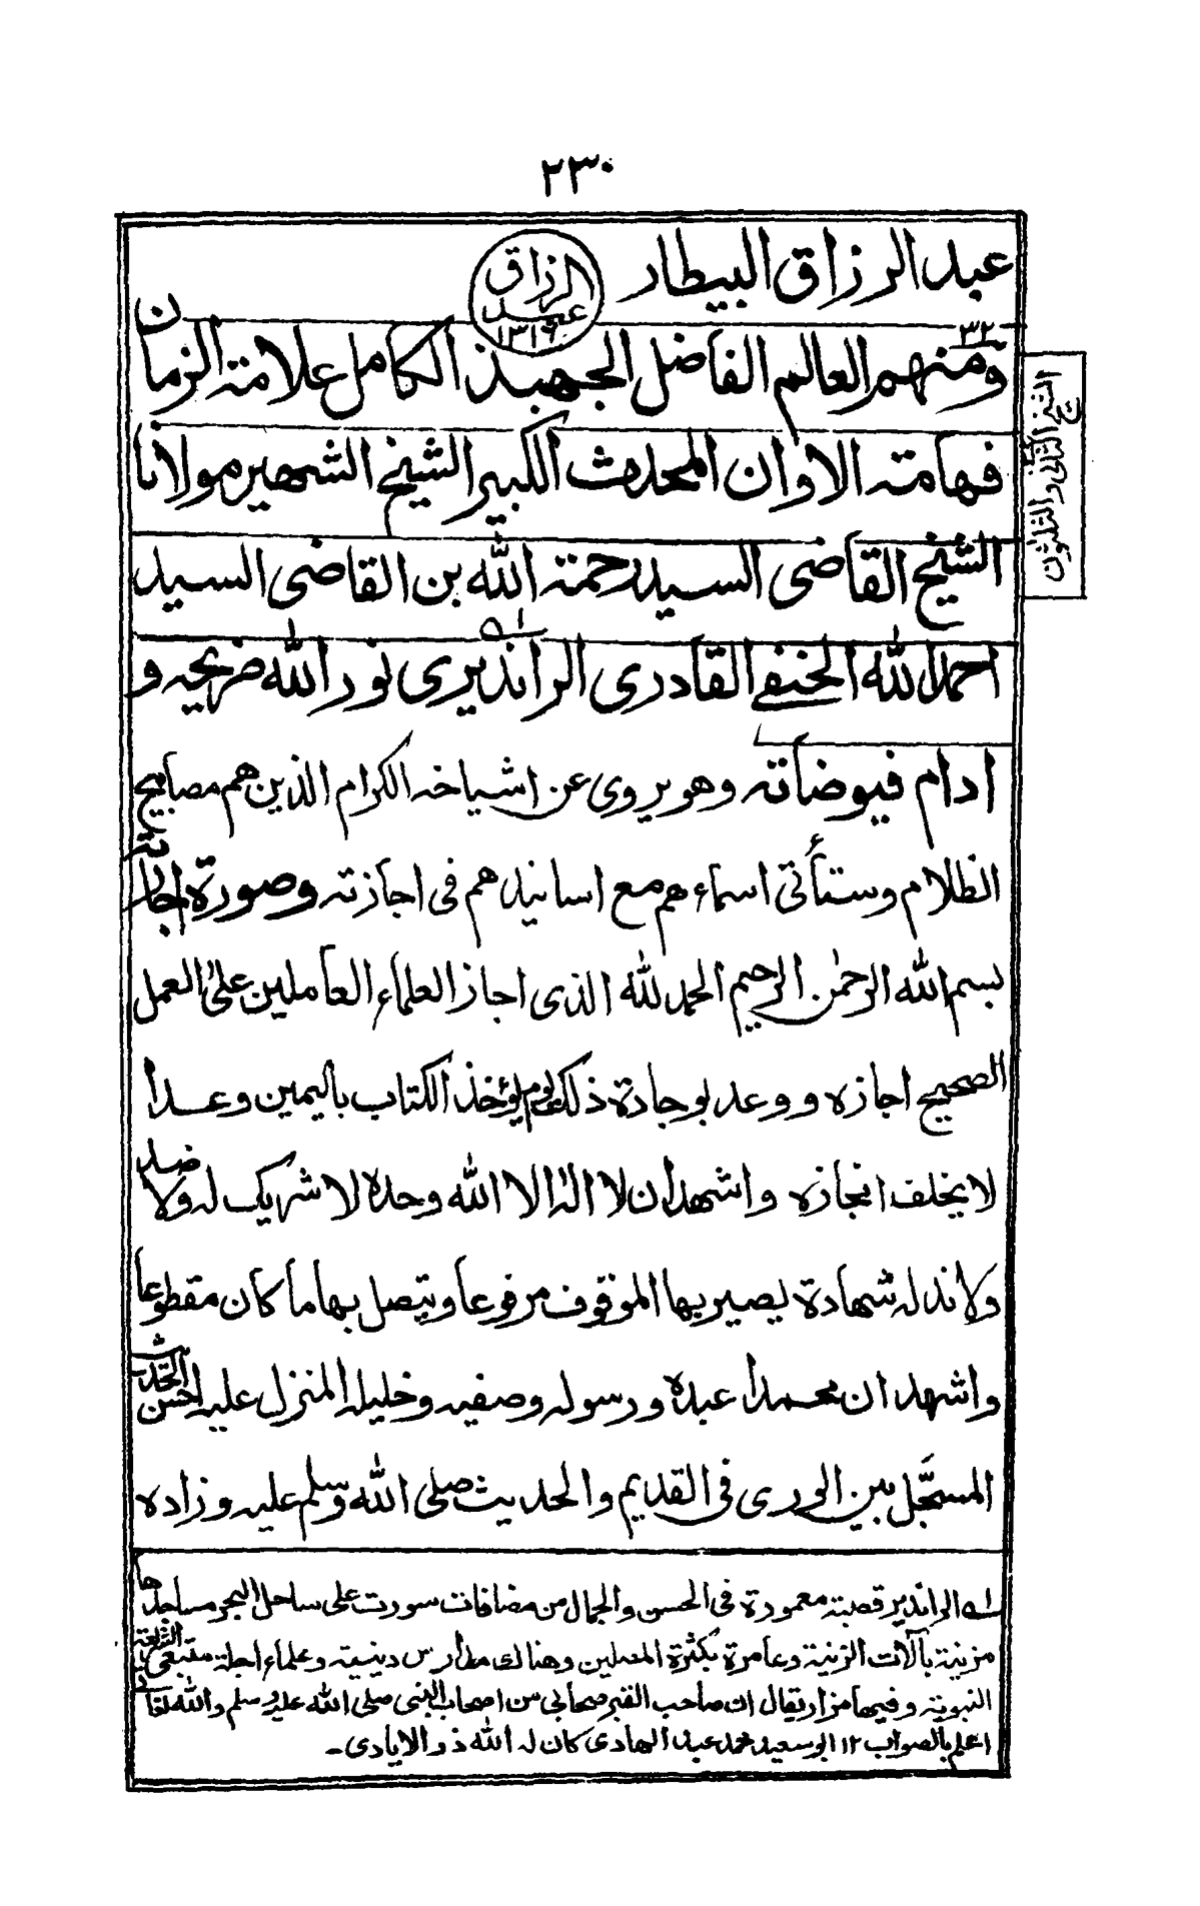 ٢٣٠
عبد الرزاق البيطار
عبد الرزاق ١٣١٦
٣٢
ومنهم العالم الفاضل الجهبذ الكامل علامة الزمان
فهامة الاوان المحدث الكبير الشيخ الشهير مولانا
الشيخ القاضى السيد رحمة الله بن القاضى السيد
احمد الله الحنفے القادرى الراندیرى نور الله ضريحه و
ادام فيوضاته وهو يروى عن اشياخه الكرام الذين هم مصابيح
الظلام وستأتى اسماءهم مع اسانيدهم فى اجازته وصورة اجازته
بسم الله الرحمٰن الرحيم الحمد لله الذى اجاز العلماء العاملين علىٰ العمل
الصحيح اجازه ووعد بوجادة ذلك يوم يؤخذ الكتاب باليمين وعدا
لا يخلف انجازه واشهد ان لا الٰه الا الله وحده لا شريك له ولا ضد
ولا ند له شهادة يصير بها الموقوف مرفوعا ويتصل بها ما كان مقطوعا
واشهد ان محمدا عبده ورسوله وصفيه وخليله المنزل عليه احسن الحديث
المسجّل بين الورى فى القديم والحديث صلى الله وسلم عليه وزاده
الشيخ الثانى والثلثون
لـه الراندير قصبة معمورة فى الحسن والجمال من مضافات سورت على ساحل البحر مساجدها
مزينة بآلات الزينة وعامرة بكثرة المصلين وهناك مدارس دينية وعلماء اجلة متبعى الشريعة
النبوية وفيها مزار يقال ان صاحب القبر صحابى من اصحاب النبى صلى الله عليه وسلم والله تعالىٰ
اعلم بالصواب ١٢ ابو سعيد محمد عبد الهادى كان له الله ذو الايادى ـ